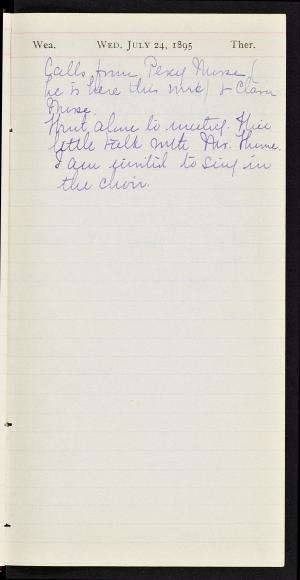 Wea. WED. JULY 24, 1895 Ther.
Calls from Percy Nurse (
he is here this week) & Clara
Nurse.
Went alone to meeting. Nice
little talk with Mr. Hume.
I am invited to sing in
the choir.